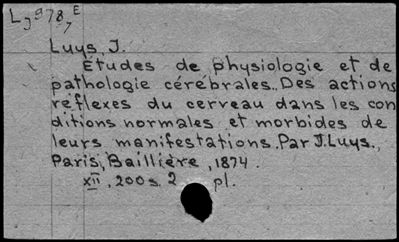 L₃978,₇E
Luys, J.
Études de physiologie et de
pathologie cérébrales.. Des actions
réflexes du cerveau dans les con
ditions normales et morbides de
leurs manifestations. Par J. Luys.,
Paris, Baillière, 1874.
XII, 200 s. 2 pl.